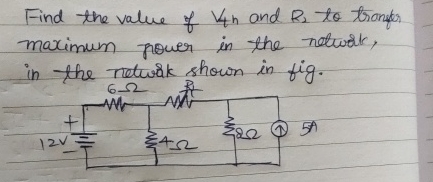 Find the value of Vth and RL to transfer
maximum power in the network,
in the network shown in fig.
6Ω
RL
+
12V
-
4Ω
2Ω
5A